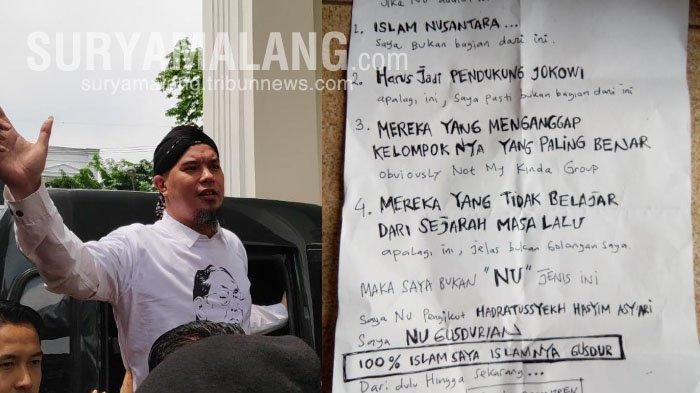 SURYAMALANG.COM
suryamalang.tribunnews.com
Jika NU adalah
1. ISLAM NUSANTARA...
Saya Bukan bagian dari ini.
2. Harus Jadi PENDUKUNG JOKOWI
apalagi, ini, Saya pasti bukan bagian dari ini
3. MEREKA YANG MENGANGGAP
KELOMPOK NYA YANG PALING BENAR
Obviously Not My Kinda Group
4. MEREKA YANG TIDAK BELAJAR
DARI SEJARAH MASA LALU
apalagi, ini, jelas bukan Golongan Saya.
MAKA SAYA BUKAN "NU" JENIS INI
Saya NU Pengikut HADRATUSSYEKH HASYIM ASY'ARI
Saya NU GUSDURIAN
100% ISLAM SAYA ISLAMNYA GUSDUR
Dari dulu Hingga sekarang...